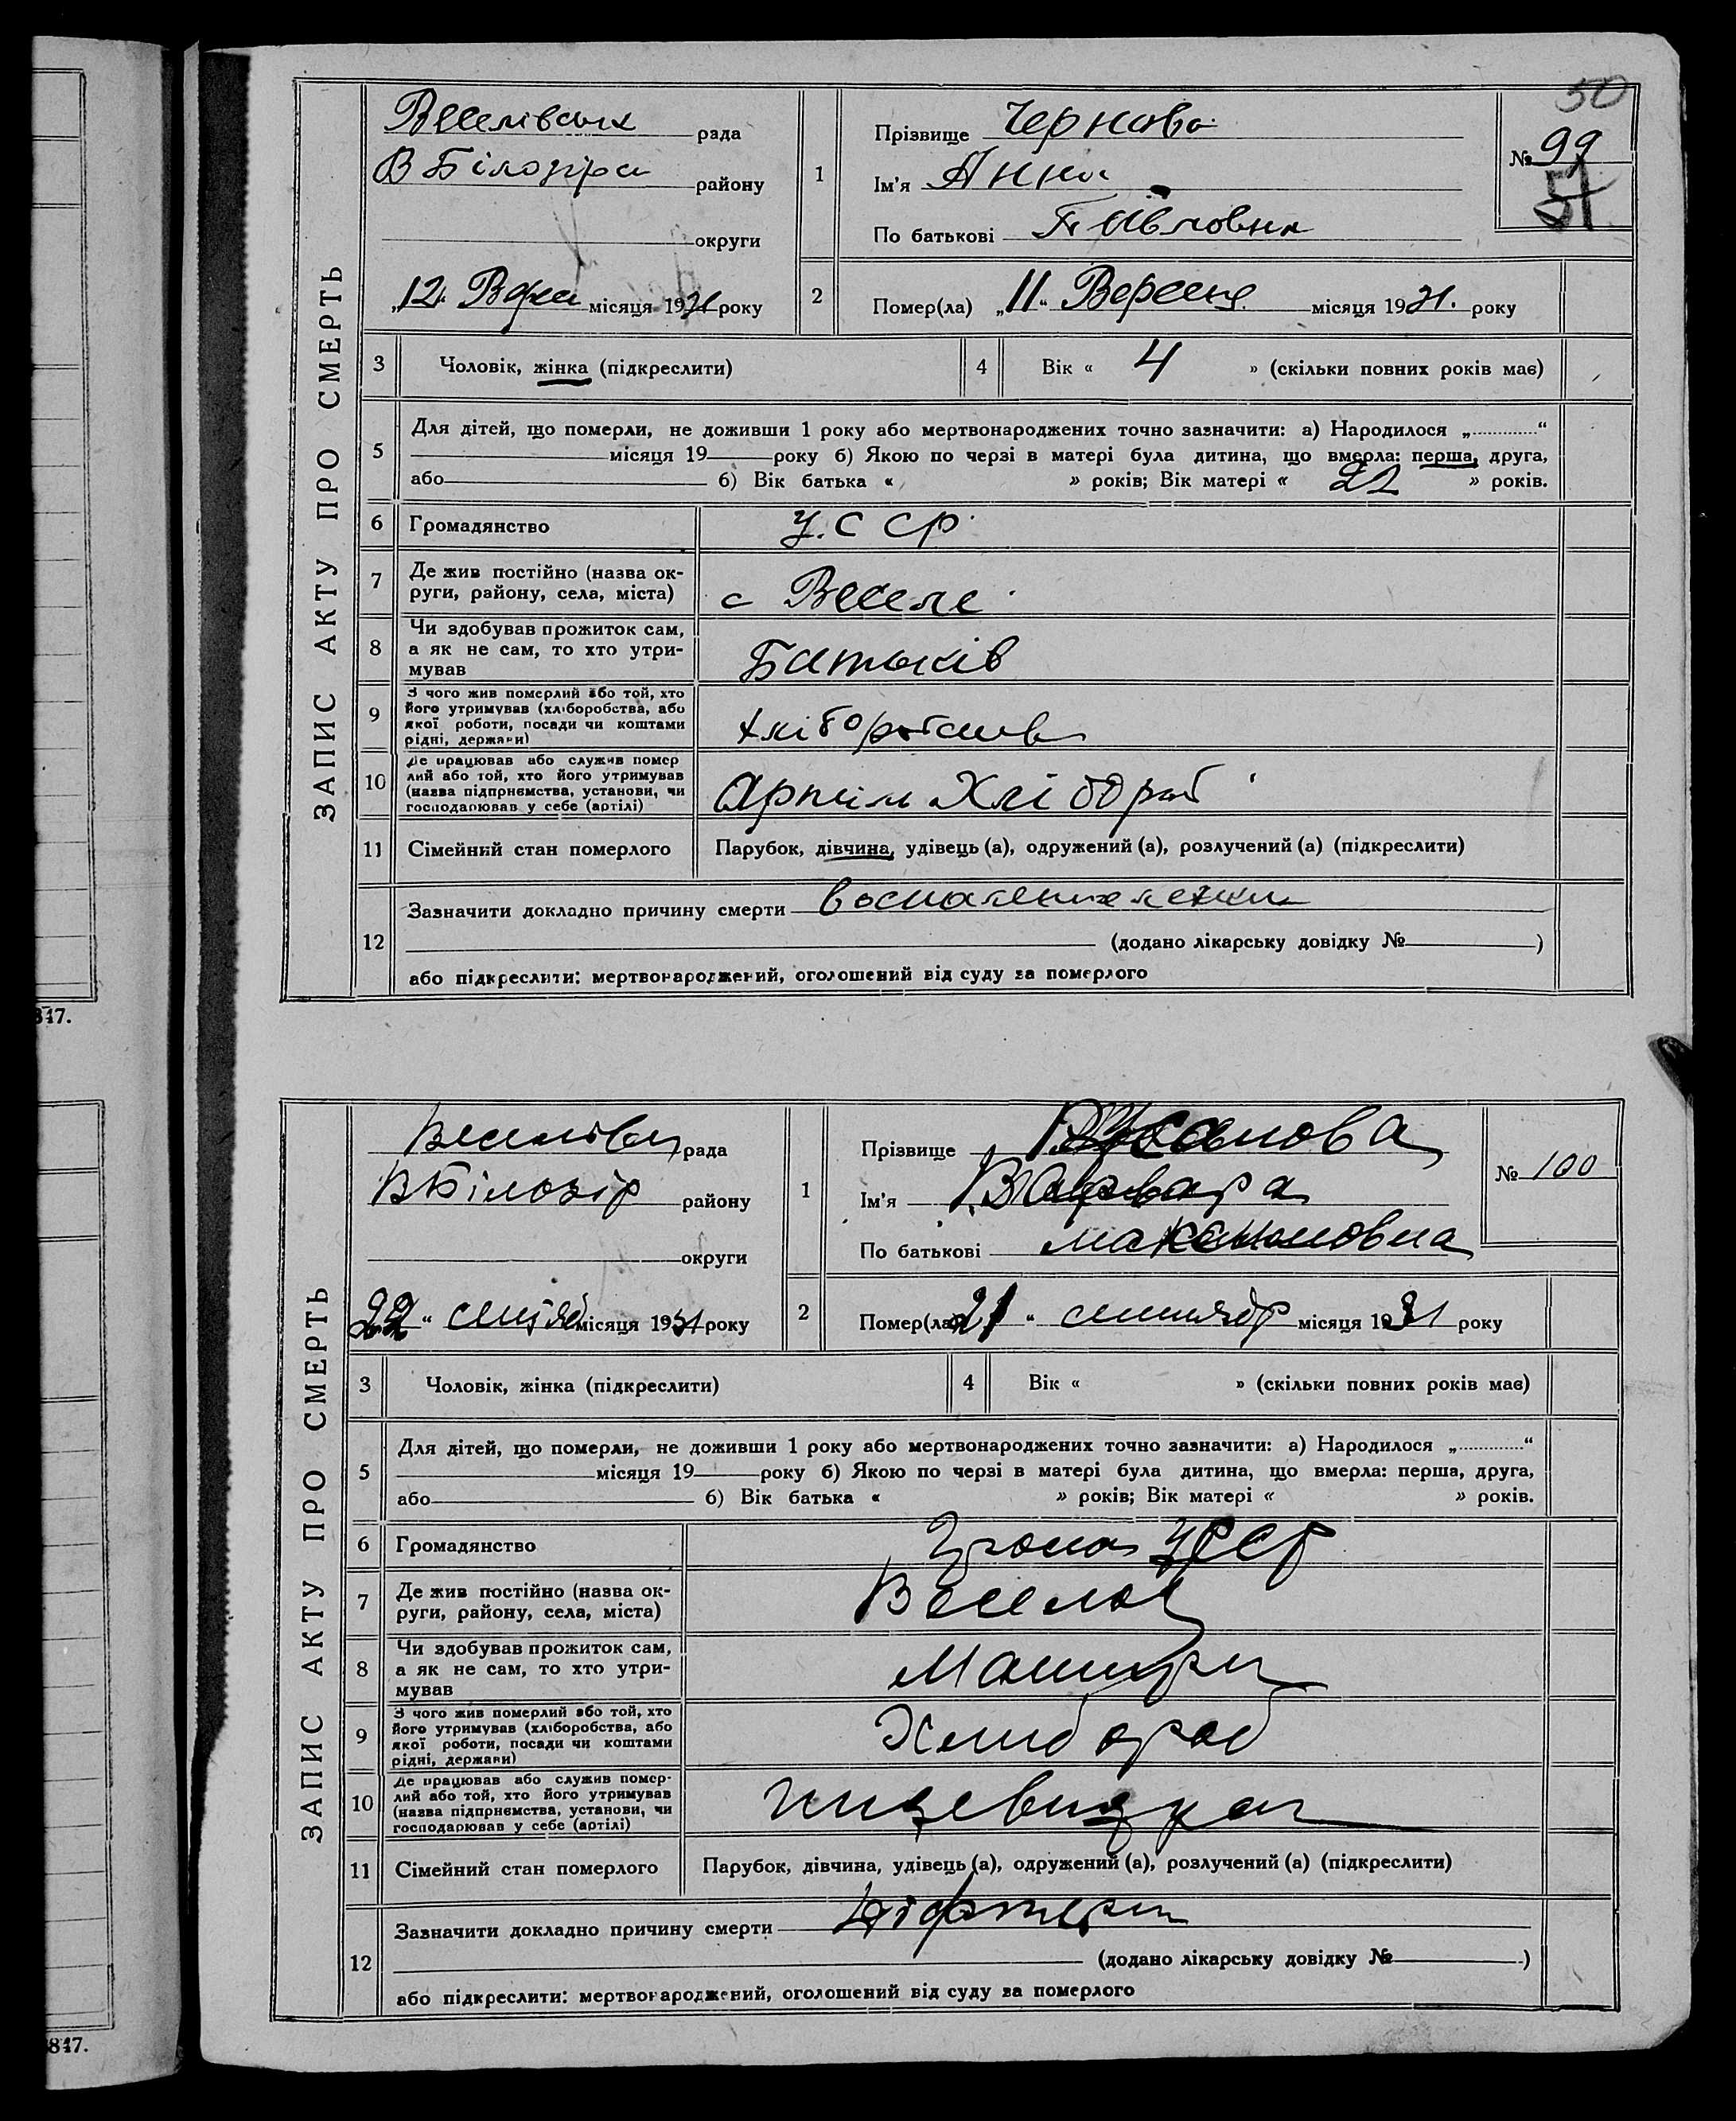 50
Веселівська рада
В Білозірка району
округи
„12“ Верес місяця 1931 року
1
Прізвище Чернова
Ім'я Анна
По батькові Павловна
№ 99
51
2
Помер(ла) „11“ Вересня місяця 1931. року
ЗАПИС АКТУ ПРО СМЕРТЬ
3 Чоловік, жінка (підкреслити)
4 Вік « 4 » (скільки повних років має)
5
Для дітей, що померли, не доживши 1 року або мертвонароджених точно зазначити: а) Народилося „............“
місяця 19 року б) Якою по черзі в матері була дитина, що вмерла: перша, друга,
або б) Вік батька « » років; Вік матері « 22 » років.
6 Громадянство У.С СР.
7 Де жив постійно (назва ок-
руги, району, села, міста) с Веселе
8 Чи здобував прожиток сам,
а як не сам, то хто утри-
мував Батьків
9 З чого жив померлий або той, хто
його утримував (хліборобства, або
якої роботи, посади чи коштами
рідні, держави)
10 Де працював або служив помер
лий або той, хто його утримував
(назва підприємства, установи, чи
господарював у себе (артілі) Артіль Хлібороб
11 Сімейний стан померлого Парубок, дівчина, удівець (а), одружений (а), розлучений (а) (підкреслити)
12
Зазначити докладно причину смерти воспаление легких
(додано лікарську довідку № )
або підкреслити: мертвонароджений, оголошений від суду за померлого
347.
рада
ВБілозір району
округи
22 “ сентяб місяця 1931 року
1
Прізвище
Ім'я Варвара
По батькові Максимовна
№ 100
2
Помер(ла) 21 “ сентябр місяця 1931 року
ЗАПИС АКТУ ПРО СМЕРТЬ
3 Чоловік, жінка (підкреслити)
4 Вік « » (скільки повних років має)
5
Для дітей, що померли, не доживши 1 року або мертвонароджених точно зазначити: а) Народилося „............“
місяця 19 року б) Якою по черзі в матері була дитина, що вмерла: перша, друга,
або б) Вік батька « » років; Вік матері « » років.
6 Громадянство УССР
7 Де жив постійно (назва ок-
руги, району, села, міста) Веселое
8 Чи здобував прожиток сам,
а як не сам, то хто утри-
мував Матери
9 З чого жив померлий або той, хто
його утримував (хліборобства, або
якої роботи, посади чи коштами
рідні, держави) Хлибороб
10 Де працював або служив помер-
лий або той, хто його утримував
(назва підприємства, установи, чи
господарював у себе (артілі)
11 Сімейний стан померлого Парубок, дівчина, удівець (а), одружений (а), розлучений (а) (підкреслити)
12
Зазначити докладно причину смерти
(додано лікарську довідку № )
або підкреслити: мертвонароджений, оголошений від суду за померлого
847.